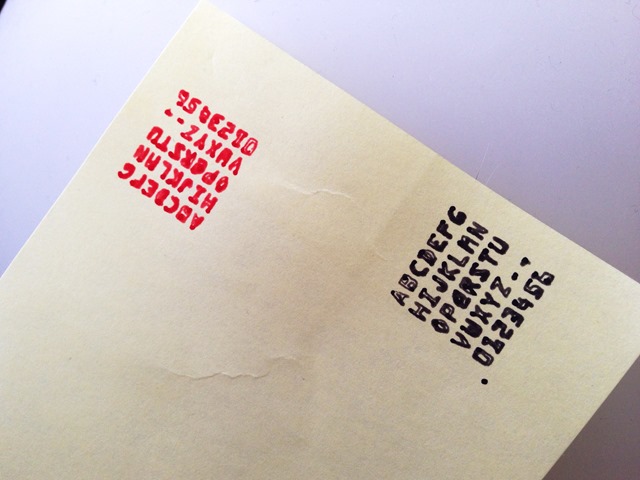 ABCDEFG
HIJKLMN
OPQRSTU
VWXYZ-'
0123456
ABCDEFG
HIJKLMN
OPQRSTU
VWXYZ-'
.0123456